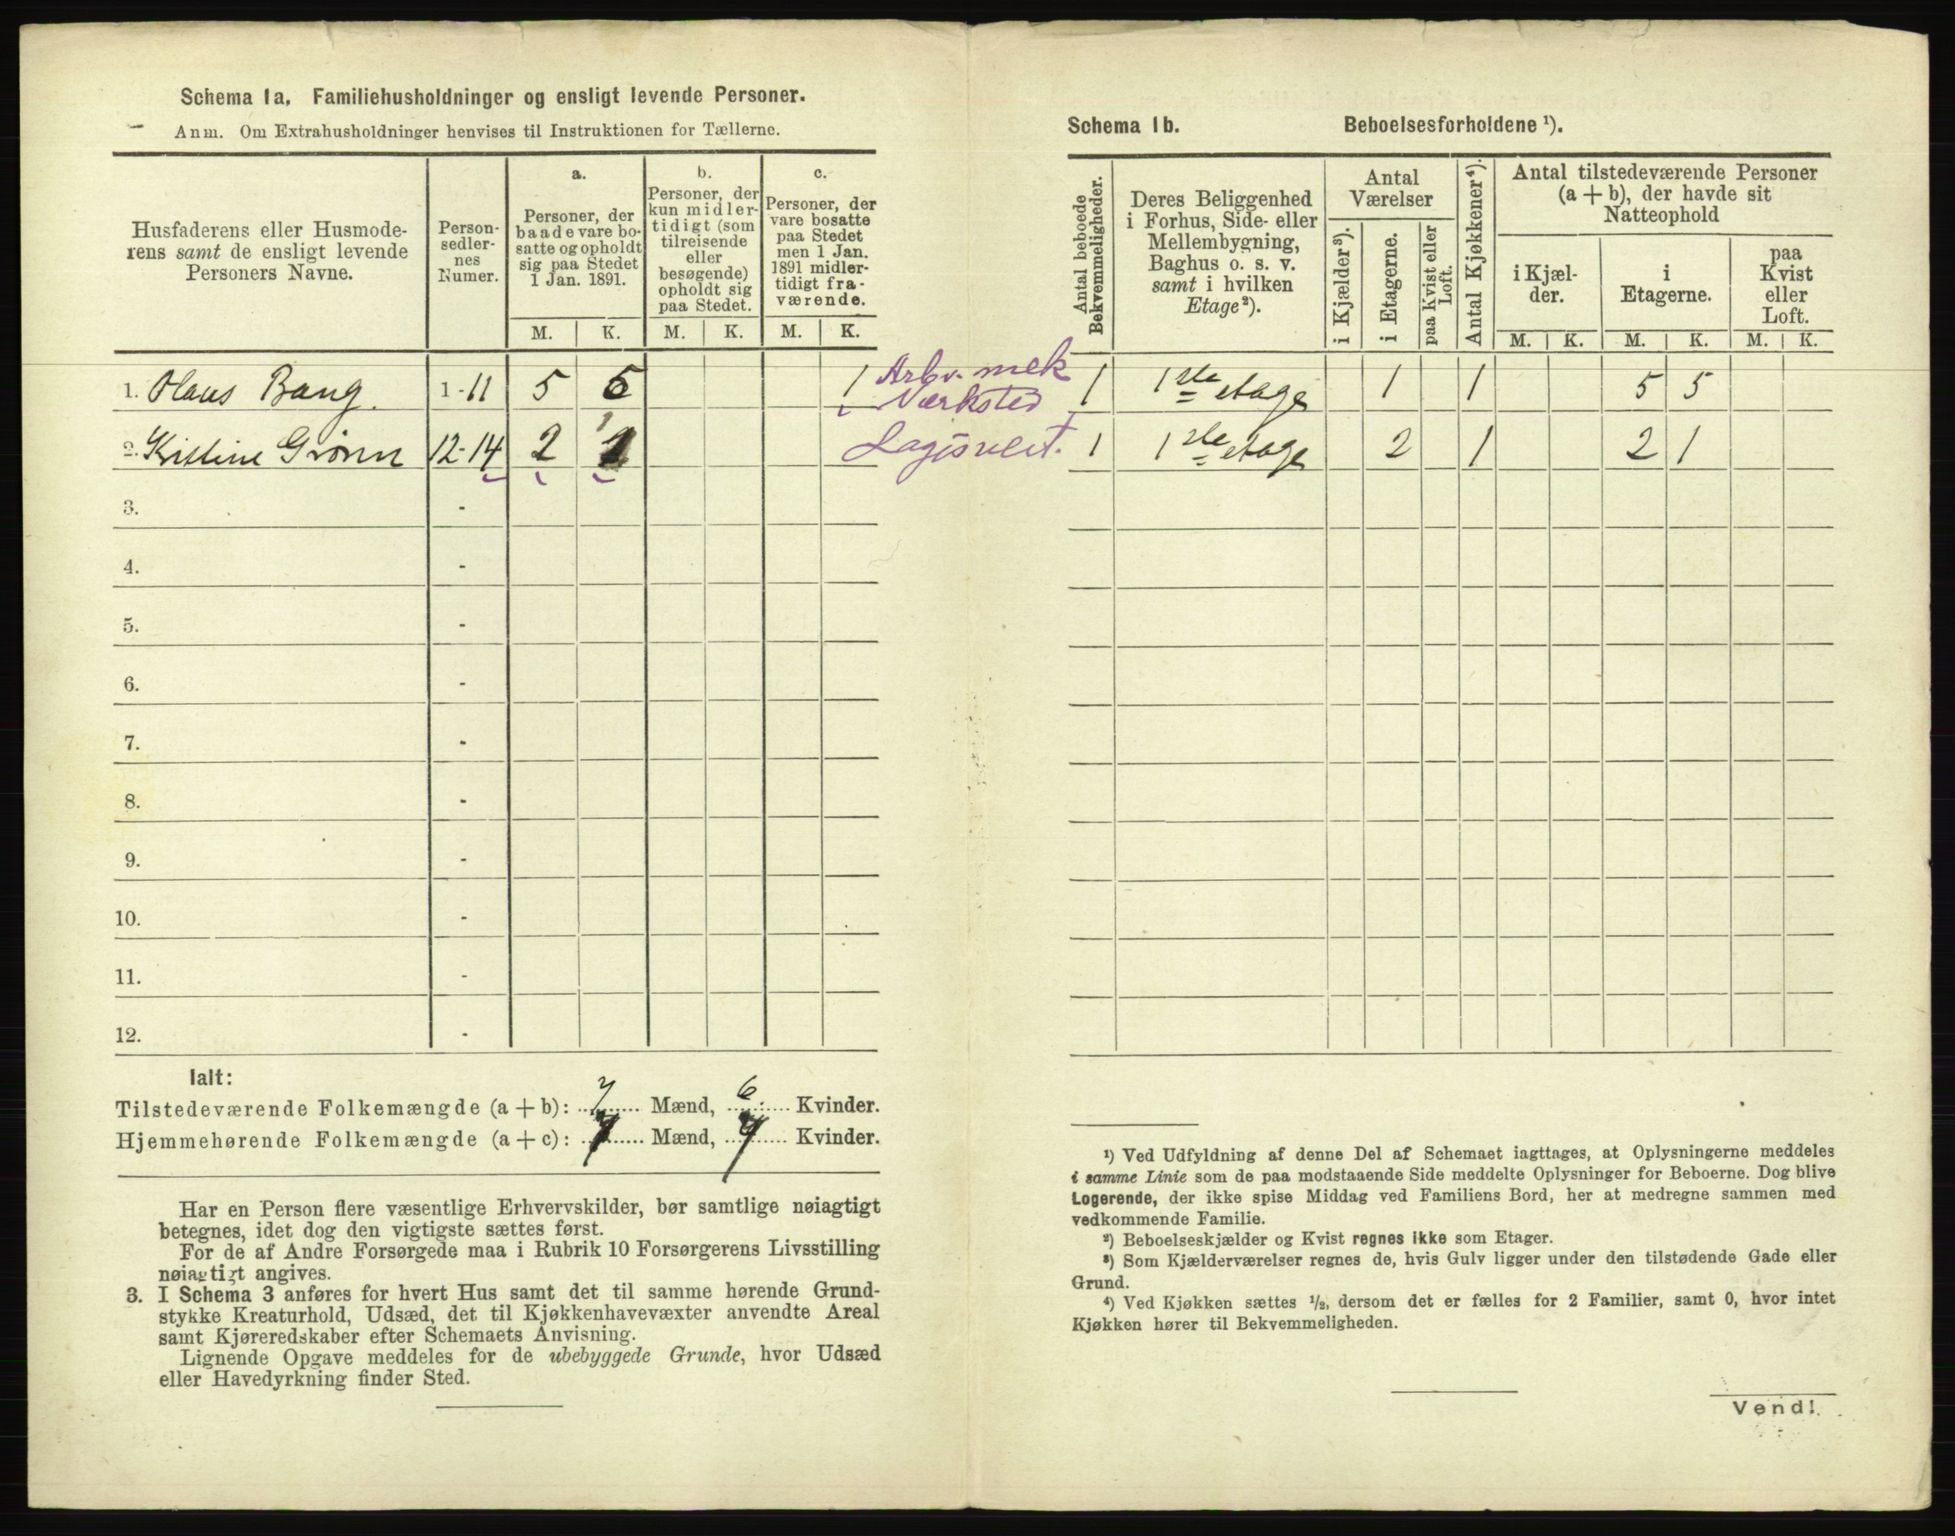 Schema 1a. Familiehusholdninger og ensligt levende Personer.
Anm. Om Extrahusholdninger henvises til Instruktionen for Tællerne.
Husfaderens eller Husmode-
rens samt de ensligt levende
Personers Navne.
Person-
sedler-
nes
Numer.
a.
Personer, der
baade vare bo-
satte og opholdt
sig paa Stedet
1 Jan. 1891.
b.
Personer, der
kun midler-
tidigt (som
tilreisende
eller
besøgende)
opholdt sig
paa Stedet.
c.
Personer, der
vare bosatte
paa Stedet
men 1 Jan.
1891 midler-
tidigt fra-
værende.
M. K. M. K. M. K.
1. Hans Bang. 1-11 5 5 1
2. Kristine Grønn 12-14 2 1
3. -
4. -
5. -
6. -
7. -
8. -
9. -
10. -
11. -
12. -
Ialt:
Tilstedeværende Folkemængde (a + b): 7 Mænd, 6 Kvinder.
Hjemmehørende Folkemængde (a + c): 7 Mænd, 7 Kvinder.
Har en Person flere væsentlige Erhvervskilder, bør samtlige nøiagtigt
betegnes, idet dog den vigtigste sættes først.
For de af Andre Forsørgede maa i Rubrik 10 Forsørgerens Livsstilling
nøiagtigt angives.
3. I Schema 3 anføres for hvert Hus samt det til samme hørende Grund-
stykke Kreaturhold, Udsæd, det til Kjøkkenhavevæxter anvendte Areal
samt Kjøreredskaber efter Schemaets Anvisning.
Lignende Opgave meddeles for de ubebyggede Grunde, hvor Udsæd
eller Havedyrkning finder Sted.
Schema 1b. Beboelsesforholdene ¹).
Antal beboede
Bekvemmeligheder.
Deres Beliggenhed
i Forhus, Side- eller
Mellembygning,
Baghus o. s. v.
samt i hvilken
Etage²).
Antal
Værelser
i Kjælder³).
i Etagerne.
paa Kvist eller
Loft.
Antal Kjøkkener⁴).
Antal tilstedeværende Personer
(a + b), der havde sit
Natteophold
i Kjæl-
der.
i
Etagerne.
paa
Kvist
eller
Loft.
M. K. M. K. M. K.
Arb. v. mek
Værksted 1 1ste etage 1 1 5 5
1 1ste etage 2 1 2 1
¹) Ved Udfyldning af denne Del af Schemaet iagttages, at Oplysningerne meddeles
i samme Linie som de paa modstaaende Side meddelte Oplysninger for Beboerne. Dog blive
Logerende, der ikke spise Middag ved Familiens Bord, her at medregne sammen med
vedkommende Familie.
²) Beboelseskjælder og Kvist regnes ikke som Etager.
³) Som Kjælderværelser regnes de, hvis Gulv ligger under den tilstødende Gade eller
Grund.
⁴) Ved Kjøkken sættes ½, dersom det er fælles for 2 Familier, samt 0, hvor intet
Kjøkken hører til Bekvemmeligheden.
Vend!